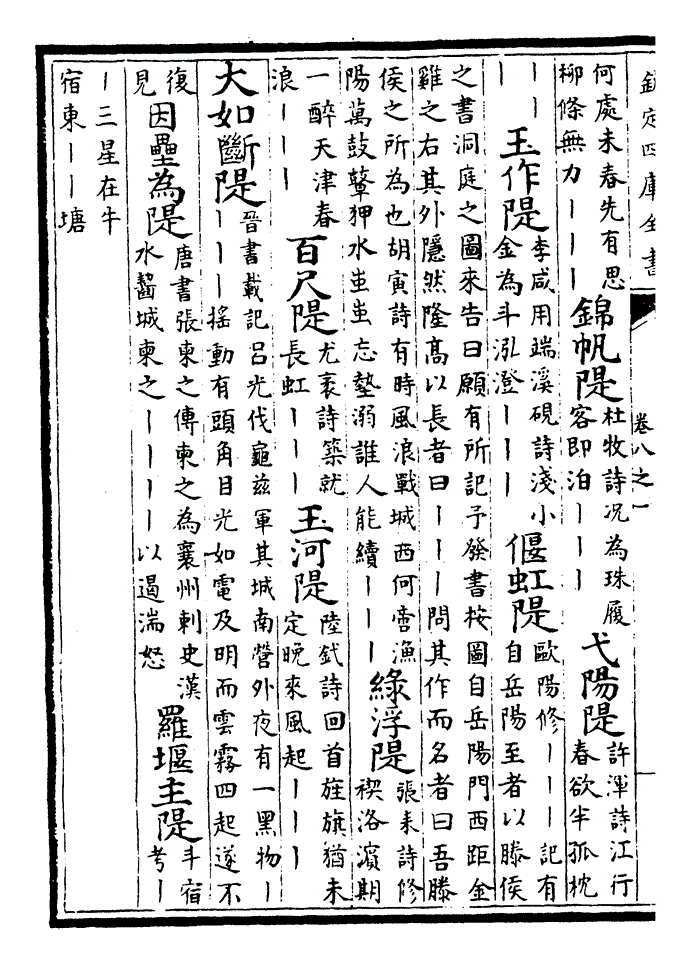 欽定四庫全書 卷八之一
何處未春先有思
柳條無力｜｜｜
錦帆隄
杜牧詩况為珠履
客即泊｜｜｜
弋陽隄
許渾詩江行
春欲半孤枕
｜｜
｜
玉作隄
李咸用端溪硯詩淺小
金為斗泓澄｜｜｜
偃虹隄
歐陽修｜｜｜記有
自岳陽至者以滕侯
之書洞庭之圖來告曰願有所記予發書按圖自岳陽門西距金
雞之右其外隱然隆高以長者曰｜｜｜問其作而名者曰吾滕
侯之所為也胡寅詩有時風浪戰城西何啻漁
陽萬鼓鼙狎水蚩蚩忘墊溺誰人能續｜｜｜
綠浮隄
張耒詩修
禊洛濱期
一醉天津春
浪｜｜｜
百尺隄
尤袤詩築就
長虹｜｜｜
玉河隄
陸釴詩回首旌旗猶未
定晚來風起｜｜｜
大如斷隄
晉書載記吕光伐龜兹軍其城南營外夜有一黑物｜
｜｜｜摇動有頭角目光如電及明而雲霧四起遂不
復
見
因壘為隄
唐書張柬之傳柬之為襄州刺史漢
水齧城柬之｜｜｜｜以遏湍怒
羅堰主隄
斗宿
考｜
｜三星在牛
宿東｜｜塘